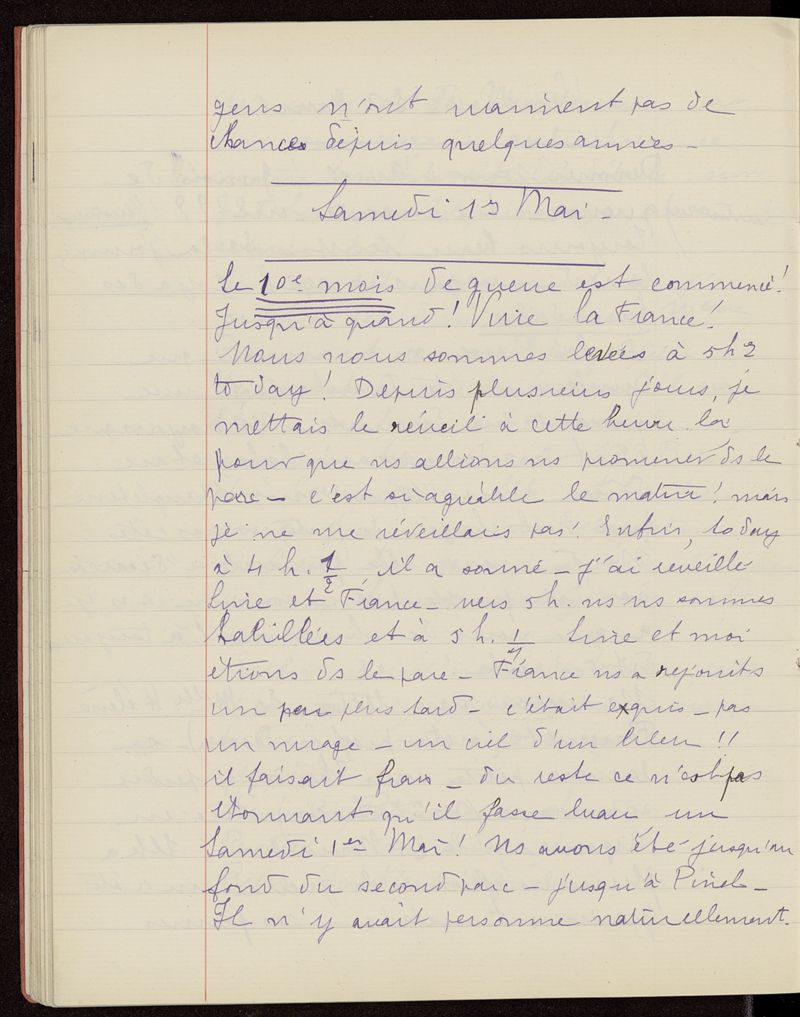 gens n'ont vraiment pas de
chances depuis quelques années -
Samedi 1er Mai -
Le 10e mois de guerre est commencé!
Jusqu'à quand! Vive la France!
Nous nous sommes levées à 5h
to day! Depuis plusieurs jours, je
mettais le réveil à cette heure là
pour que ns allions ns promener ds le
parc - c'est si agréable le matin! mais
je ne me réveillais pas! Enfin, to day
à 4 h. 1/2, il a sonné - j'ai réveillé
Livie et France - vers 5h. ns ns sommes
habillées et à 5h. 1/2 Livie et moi
étions ds le parc - France ns a rejoints
un peu plus tard - c'était exquis - pas
un nuage - un ciel d'un bleu !!
il faisait frais - du reste ce n'est pas
étonnant qu'il fasse beau un
Samedi 1er Mai! Ns avons été jusqu'au
fond du second parc - jusqu'à Pinel -
Il n'y avait personne naturellement.